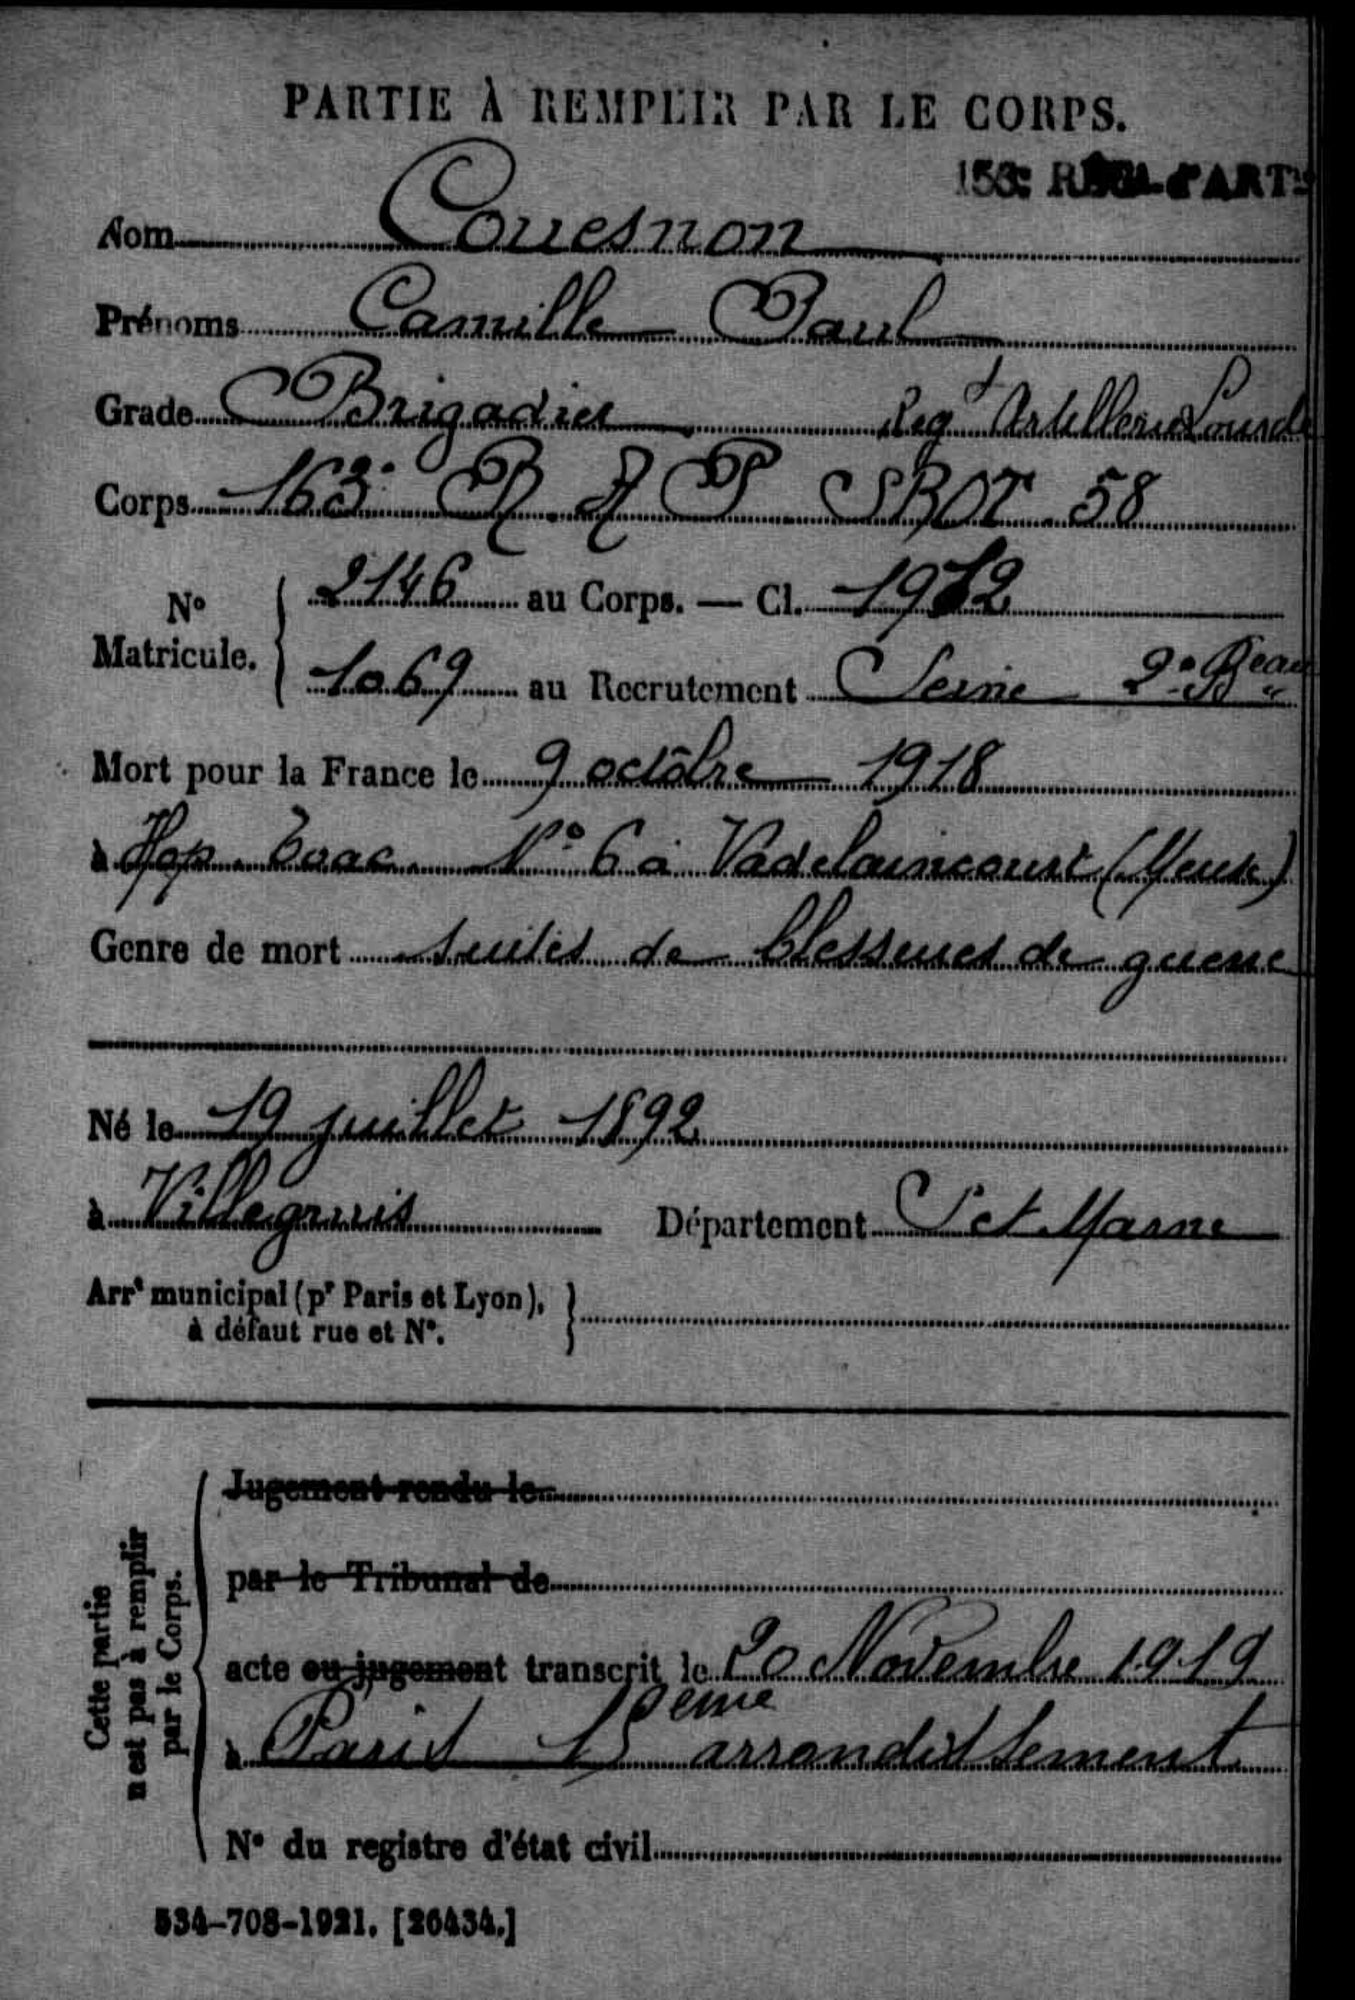 PARTIE À REMPLIR PAR LE CORPS.
156e RÉGt. d'ARTie
Nom Couesnon
Prénoms Camille Paul
Grade Brigadier Regt Artillerie Lourde
Corps 163e R A P SROT 58
No Matricule. 2146 au Corps. — Cl. 1912
1069 au Recrutement Seine 2e Beau
Mort pour la France le 9 octobre 1918
à Hop. Evac. No 6 à Vadelaincourt (Meuse)
Genre de mort suites de blessures de guerre
Né le 19 juillet 1892
à Villegruis Département S et Marne
Arrt municipal (pr Paris et Lyon),
à défaut rue et No.
Cette partie
n'est pas à remplir
par le Corps.
Jugement rendu le
par le Tribunal de
acte ou jugement transcrit le 20 Novembre 1919
à Paris 15eme arrondissement
No du registre d'état civil
534-708-1921. [26434.]